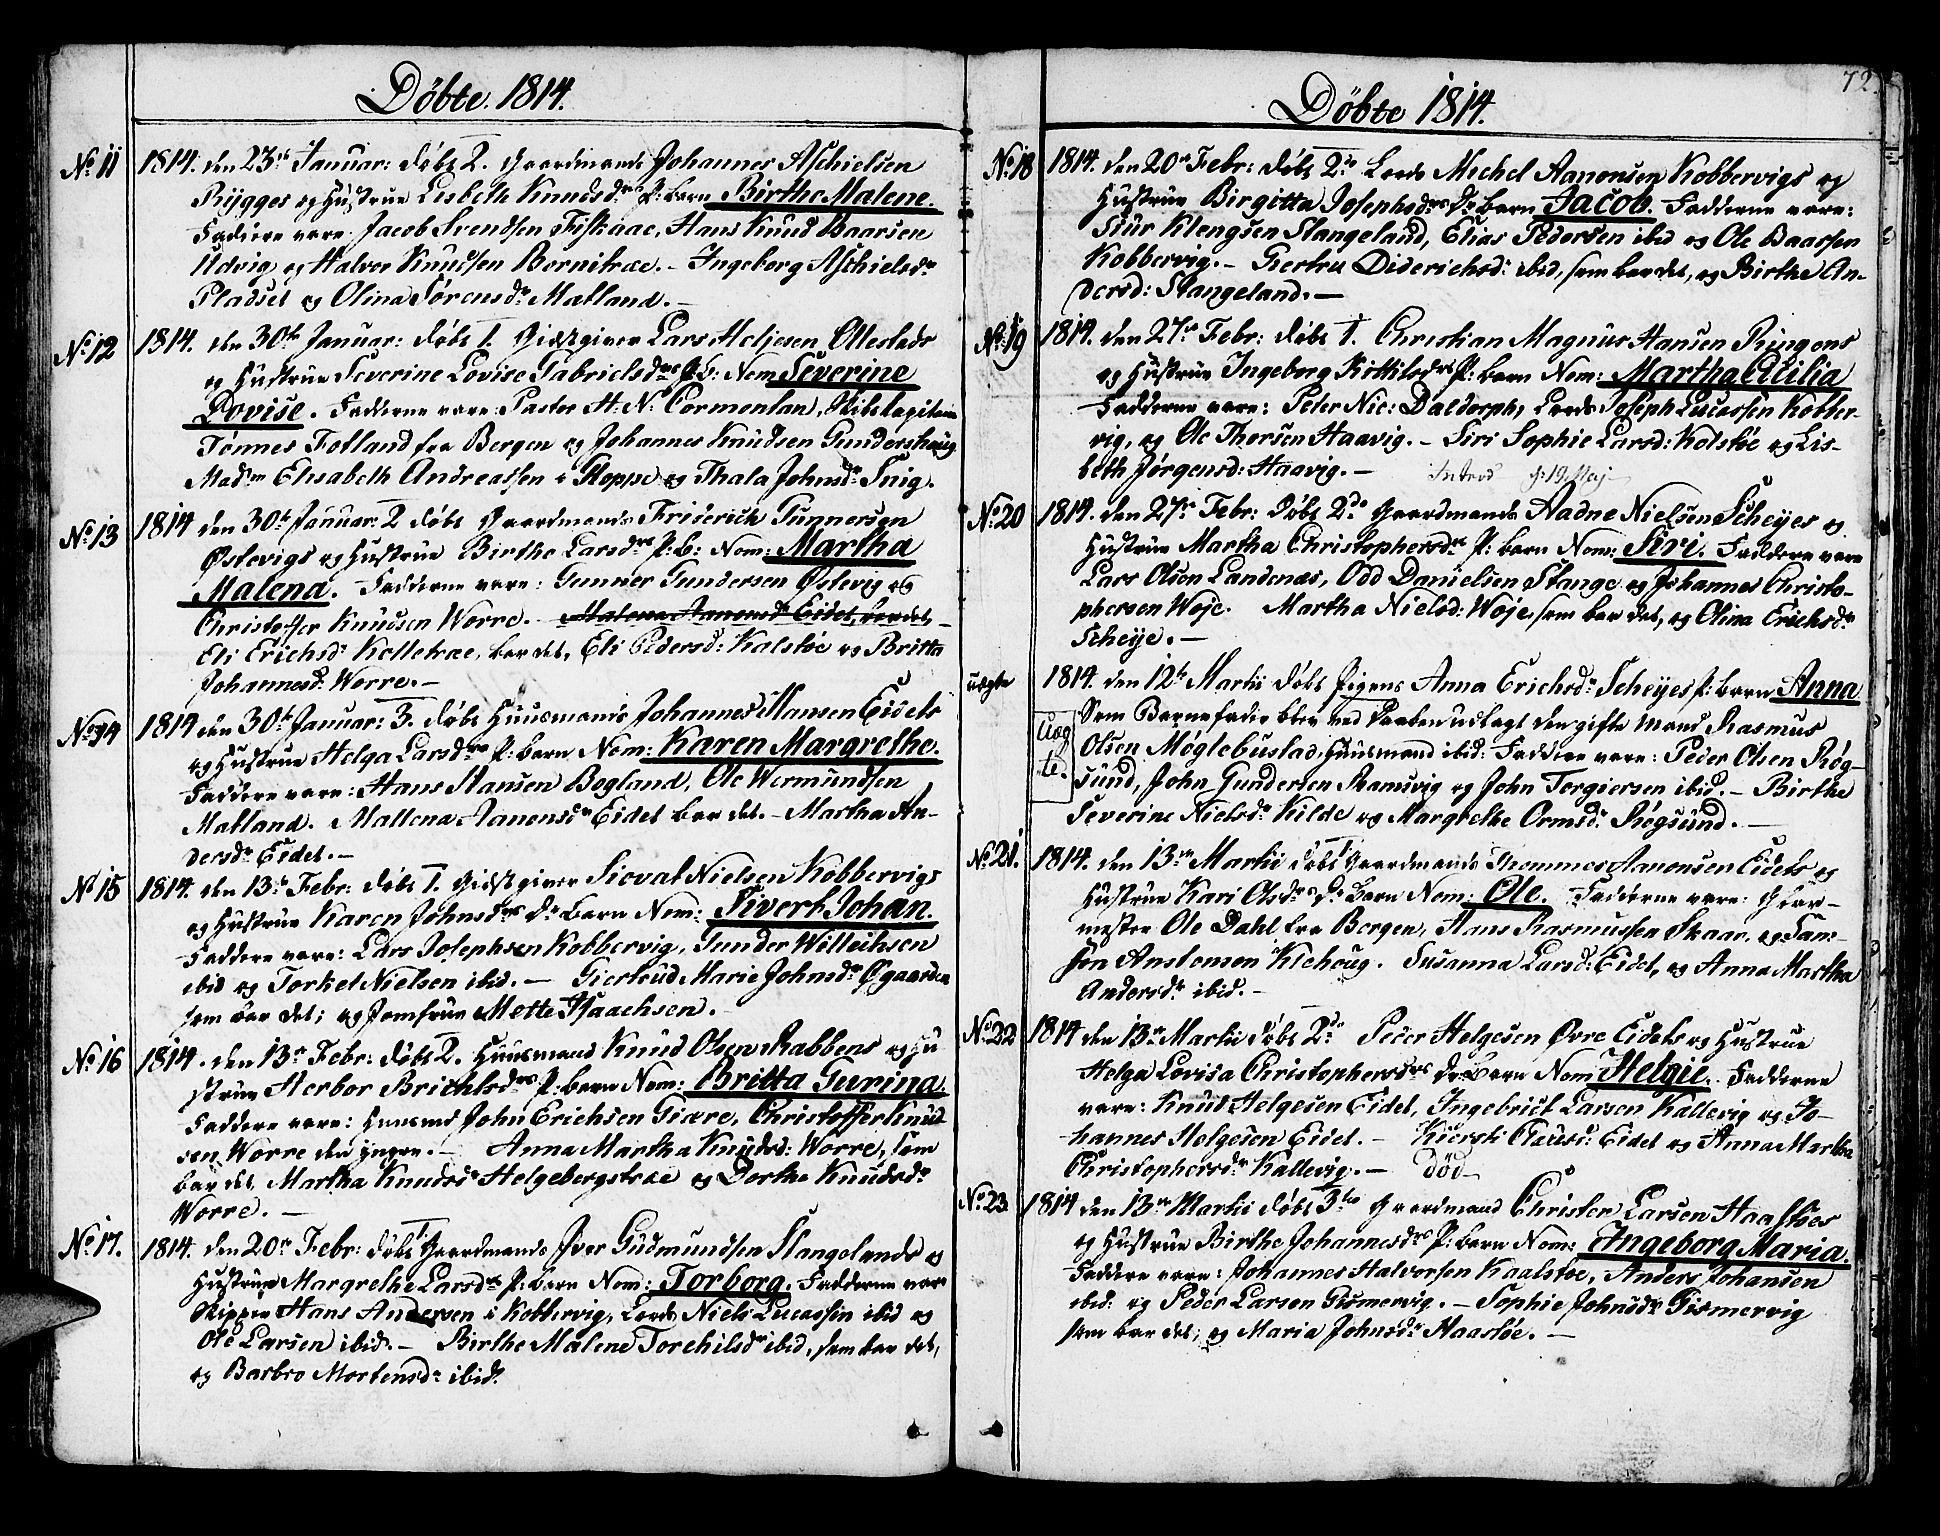 Döbte. 1814.
No 11 1814. den 23de Januar: döbt 2. Gaardmands Johannes Aschielsen
Rÿgges og Hustrue Lisbeth Knudsdrs P: barn Birthe Malene.
Faddere vare. Jacob Svendsen Fiskaae, Hans Knud Baarsen
Udvig og Halvor Knudsen Bornitræ. – Ingeborg Aschielsdr
Pladset og Olina Sörensdr Matland. –
No 12 1814. den 30te Januar: döbt 1. Giestgiver Lars Heljesen Ollesteds
og Hustrue Severine Lovise Gabrielsdrs P: b: Nom Severine
Lovise. Fadderne vare: Pastor H: N: Cormontan, Skibskapitain
Tönnes Fotland fra Bergen og Johannes Knudsen Gundershaug
Madm Elisabeth Andreassen i Kopp og Thala Johnsdr Snig.
No 13 1814 den 30te Januar: 2 döbt Gaardmands Friderich Gunnersen
Östevigs og Hustrue Birthe Larsdrs P: b: Nom: Martha
Malena. Fadderne vare: Gunner Gundersen Östevig og
Christoffer Knudsen Worre. – Malena Aanonsdr Eidet, bar det –
Eli Erichsdr Kolletræ, bar det, Eli Pedersd: Kalstöe og Britta
Johannesd: Worre. –
No 14 1814 den 30te Januar: 3. döbt Huusmands Johannes Hansen Eidets
og Hustrue Helga Larsdrs P: barn Nom: Karen Margrethe.
Faddere vare: Hans Hansen Bogland, Ole Wermundsen
Matland. Mallena Aanonsdr Eidet bar det. – Martha An-
dersdr Eidet. –
No 15 1814. den 13de Febr: döbt 1. Giestgiver Sieval Nielsen Kobbervigs
og Hustrue Karen Johnsdrs D: barn Nom: Sivert Johan.
Faddere vare: Lars Josephsen Kobbervig, Gunder Willeihsen
ibid og Torkel Nielsen ibid. – Giertrud Marie Johnsdr Øgaarden
som bar det; og Jomfrue Mette Isaachsen. –
No 16 1814. den 13de Febr: döbt 2. Huusmand Knud Olsen Rabbens og Hu
strue Herbor Brichtsdrs P: barn Nom: Britta Gurina.
Faddere vare: Huusmd John Erichsen Giære, Christoffer Knud
sen Worre den yngre. – Anna Martha Knudsd: Worre, som
bar det Martha Knudsdr Helgebergstræ og Dorthe Knudsdr
Worre. –
No 17. 1814. den 20de Febr: döbt 1 Gaardmands Iver Gudmundsen Stangelands og
Hustrue Margrethe Larsdrs P: barn Nom: Torborg. Fadderne var
Skipper Hans Andersen i Kobbervig, Lods Niels Lucassen ibid og
Ole Larsen ibid. – Birthe Malene Torchilsdr ibid, som bar det,
og Barbro Mortensdr ibid.
72.
Döbte 1814.
No 18 1814. den 20de Febr: döbt 2de Lods Michel Aanonsen Kobbervigs og
Hustrue Birgitta Josephsdrs D: barn Jacob. Fadderne vare:
Siur Klengsen Stangeland, Elias Pedersen ibid og Ole Baarsen
Kobbervig. – Giertru Diderichsdr ibid, som bar det, og Birthe An-
dersd: Stangeland. –
No 19 1814. den 27de Febr: döbt 1. Christian Magnus Hansen Ringens
og Hustrue Ingeborg Kittilsdrs P: barn Nom: Martha Cicilia
Fadderne vare: Peter Nic: Daldorph, Lods Joseph Lucassen Kobber-
vig, og Ole Thorsen Haavig. – Siri Sophie Larsd: Kolstöe og Lis-
beth Jörgensd: Haavig. – Introd d: 19 Maj –
No 20 1814. den 27de Febr: döbt 2de Gaardmands Aadne Nielsen Scheyes og
Hustrue Martha Christophersdrs P: barn Nom: Siri. Faddere vare
Lars Olsen Landenæs, Odd Danielsen Stange og Johannes Christo-
phersen Woje. Martha Nielsd: Woje, som bar det, og Olina Erichsdr
Scheÿe. –
uægte 1814. den 12te Martii döbt Pigens Anna Erichsdr Scheÿes P: barn Anna
Uæg
te.
Som Barnefader blev ved Daaben udlagt den gifte mand Rasmus
Olsen Møglebustad, Huusmand ibid: Faddere vare: Peder Olsen Røg-
sund, John Gundersen Ramsvig og John Torgiersen ibid. – Birthe
Severine Nielsdr Kilde og Margrethe Ormsdr Røgsund. –
No 21. 1814. den 13de Martii döbt 1 Gaardmands Thommes Aanonsen Eidets og
Hustrue Kari Olsdrs D: barn Nom: Ole. Fadderne vare: Glar-
mester Ole Dahl fra Bergen, Hans Rasmussen Skaar, og Sam-
son Anstenson Klehoug. Susanna Larsd: Eidet, og Anna Martha
Andersdr ibid. –
No 22 1814 den 13de Martii döbt 2de Peder Helgesen Øvre Eidets og Hustrue
Helga Lovisa Christophersdrs D: Barn Nom Helgie. Fadderne
vare: Knud Helgesen Eidet, Ingebrict Larsen Kallevig og Jo-
hannes Helgesen Eidet. – Kiersti Clausd: Eidet og Anna Martha
Christophersdr Kallevig. – död
No 23. 1814 den 13de Martii döbt 3de Gaardmand Christen Larsen Haastöes
og Hustrue Birthe Johannesdrs P: barn Nom: Ingeborg Maria.
Faddere vare: Johannes Halvorsen Kaalstöe, Anders Johansen
ibid: og Peder Larsen Gismervig. – Sophie Johnsdr Gismervig
som bar det; og Maria Johnsdr Haastöe. –